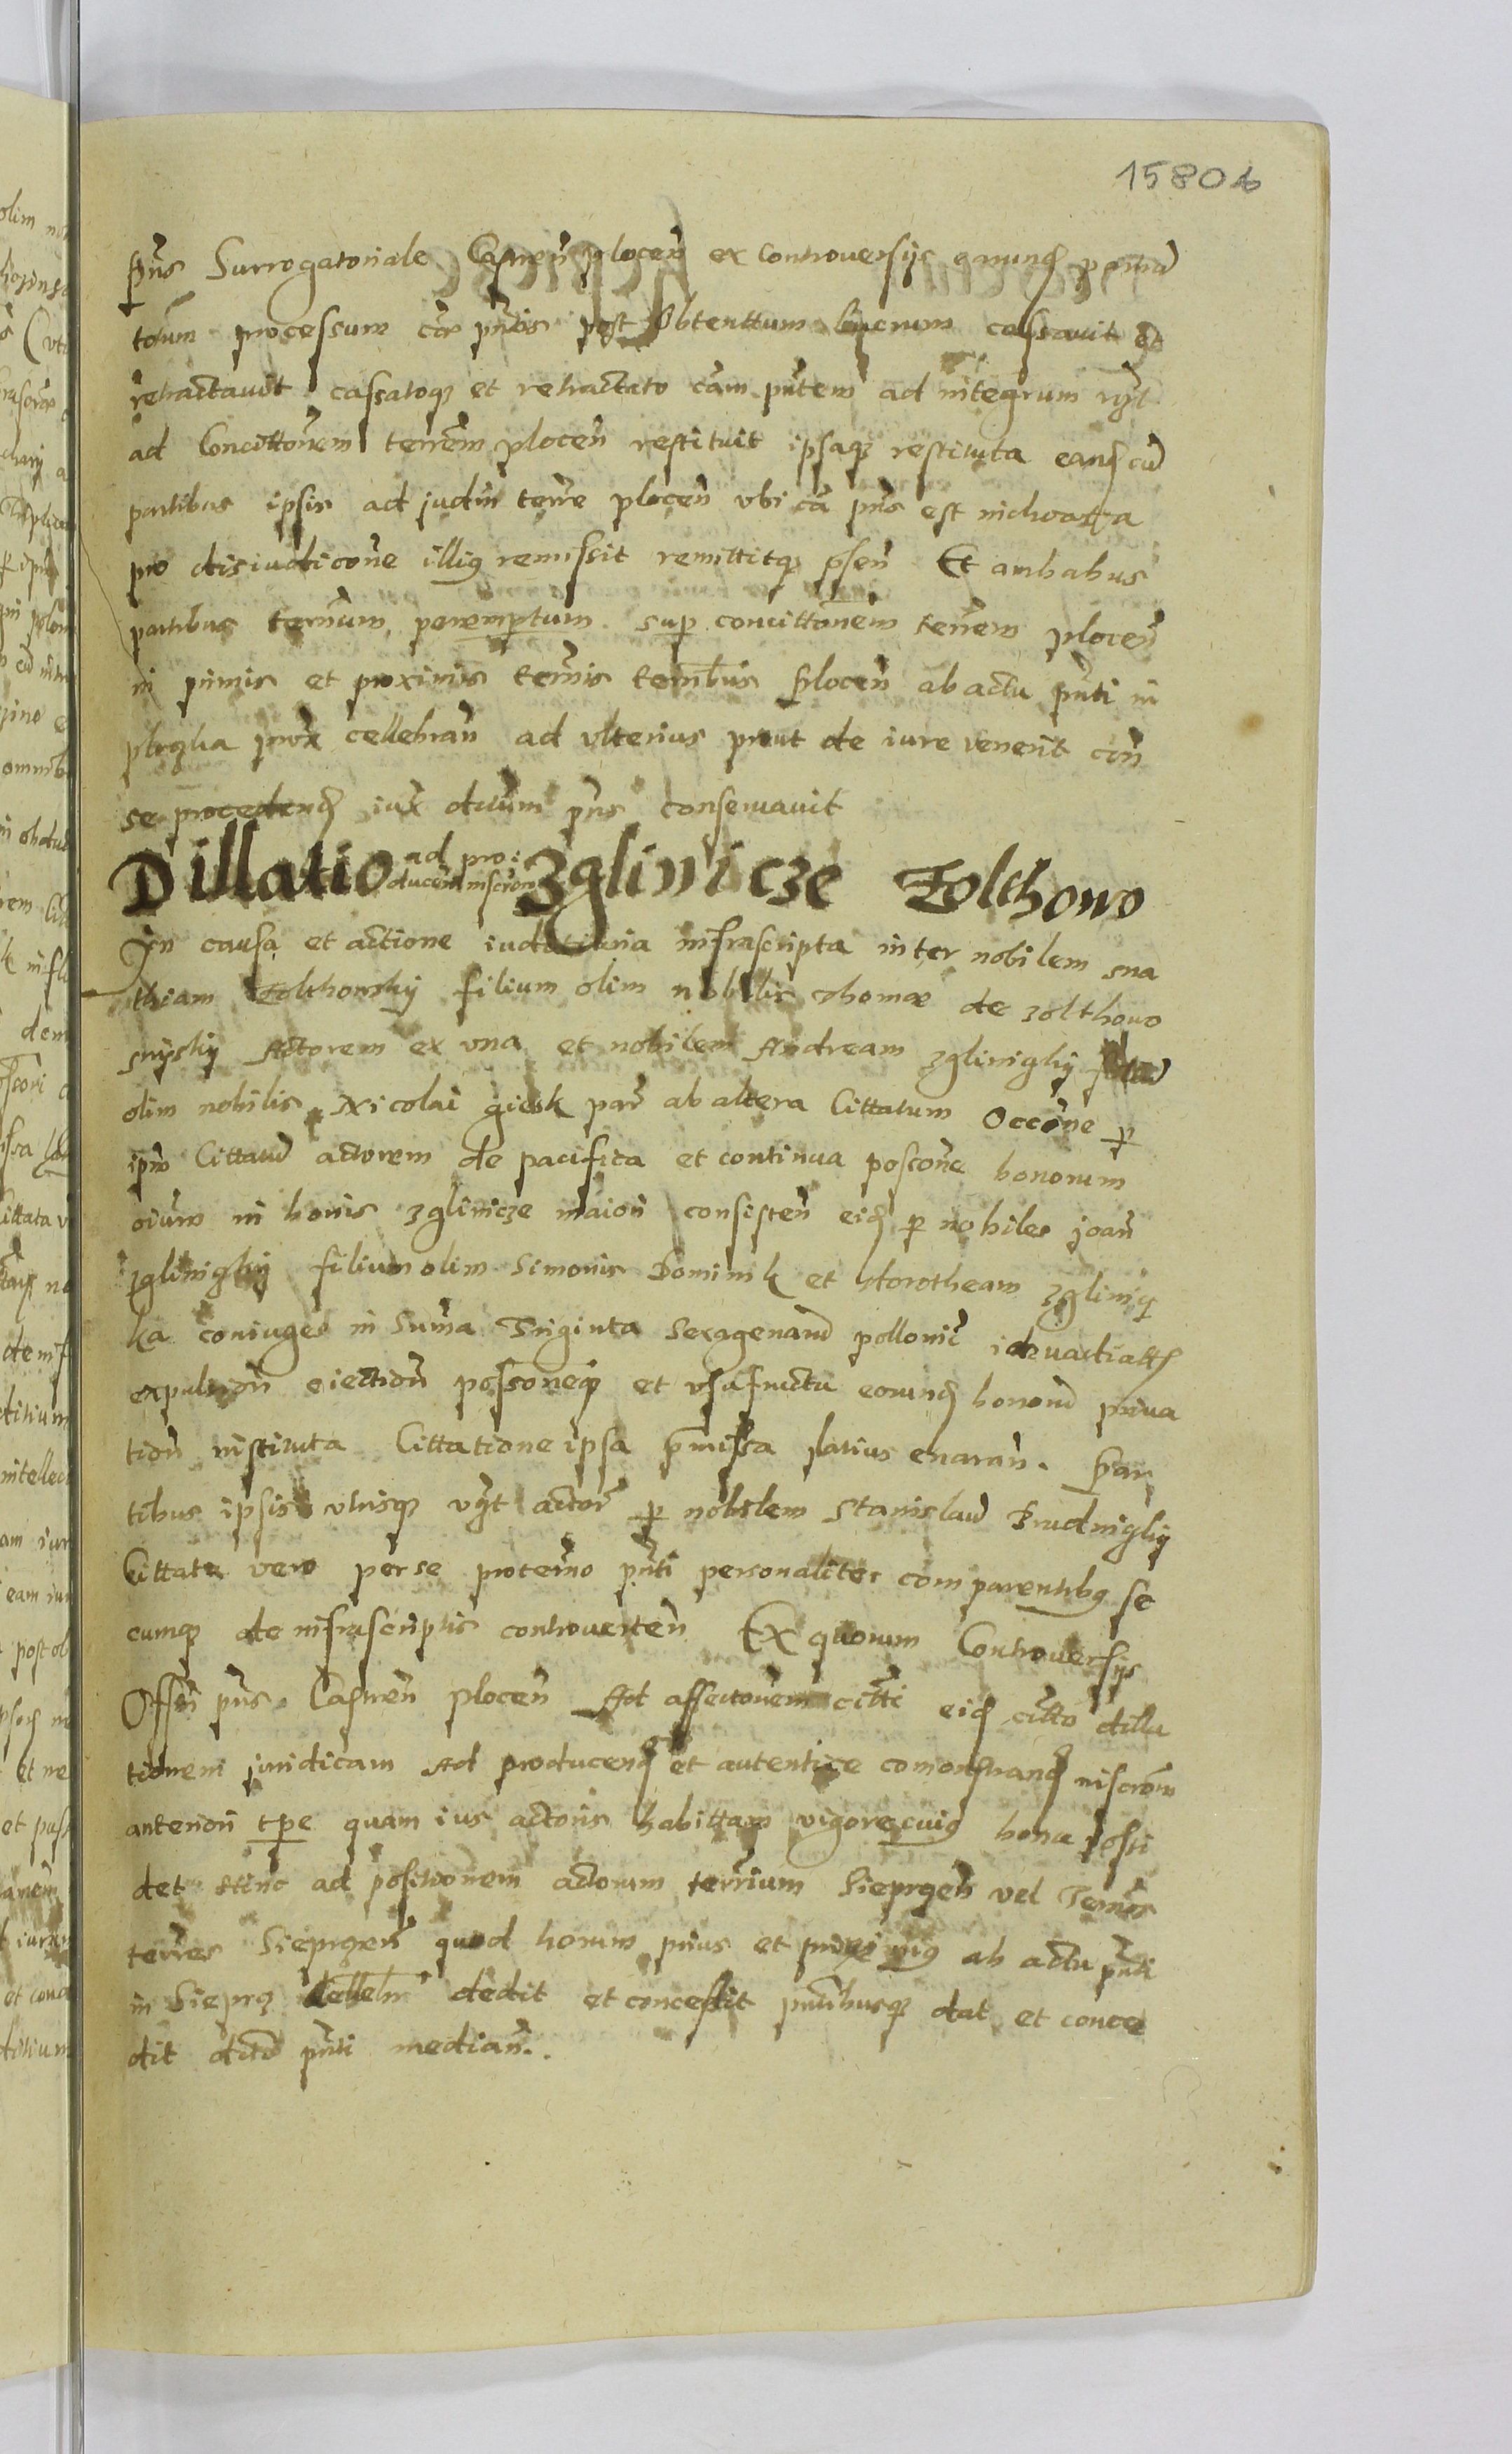 1580
pn̄s Surrogatoriale Castren̄ plocen̄ ex Controversijs earund
totum processum cā pn̄tis post Obtenttum lucrum cassauit et
retractauit cassatoq et retractato cām pn̄tem ad integrum
ad Concittonem terrēm plocen̄ restituit ipsaq restituta eand cū
partibus ipsis ad judin terre plocen̄ vbi cā pn̄s est inchoatta
pro disiudicone illig remissit remittitq psen̄ Et ambabus
partibus termum peremptum sup concittonem terrem plocen̄
in primis et proximis termis terribus plocen̄ ab actu pn̄ti in
prox cellebran ad vlterius prout de iure venerit
se procedend iux pn̄s conseruauit
Dillatio ad pro: ducen inscron Zglinicze Zolthowo
In causa et actione infrascripta inter nobilem
thiam Zolthowsky filium olim nobilis Thomae de Zolthowo
Actorem ex vna et nobilem Andream zglinigky
olim nobilis Nicolai par ab altera Cittatum Occōne p
ipm Cittatū actorem de pacifica et continua poscone bonorum
oium in bonis zglinicze maiori consisten̄ eid p nobiles joan̄
zglinigky filium olim Simonis Dominik et dorotheam zglinig
ka coniuges in Suma Triginta Sexagenarū pollonic
expulsion̄ eiection̄ possoneq et vsufructu eorund bonorū priua
tion̄ instituta Cittatione ipsa pmissa latius enarran. Par
tibus ipsis vtrisq actore p nobilem Stanislaū Prudnigky
Cittato vero per se pro termo pn̄ti personaliter comparentibg se
cumq de infrascriptis controuerten̄ Ex quorum Controversijs
Offin̄ pn̄s Castren̄ plocen̄ Ad affectonem citti eid citto dilla
tionem juridicam Ad producend et autentice comonstrand inscrom
anteriori tpe quam ius actoris habittam vigore cuig bona possi
det ad positionem actorum terrium Sieprcen̄ vel Termis
terres Sieprcen̄ quod horum prius et ab actu pn̄ti
in Sieprc Cellebr dedit et concessit dat et conce
dit pn̄ti median.